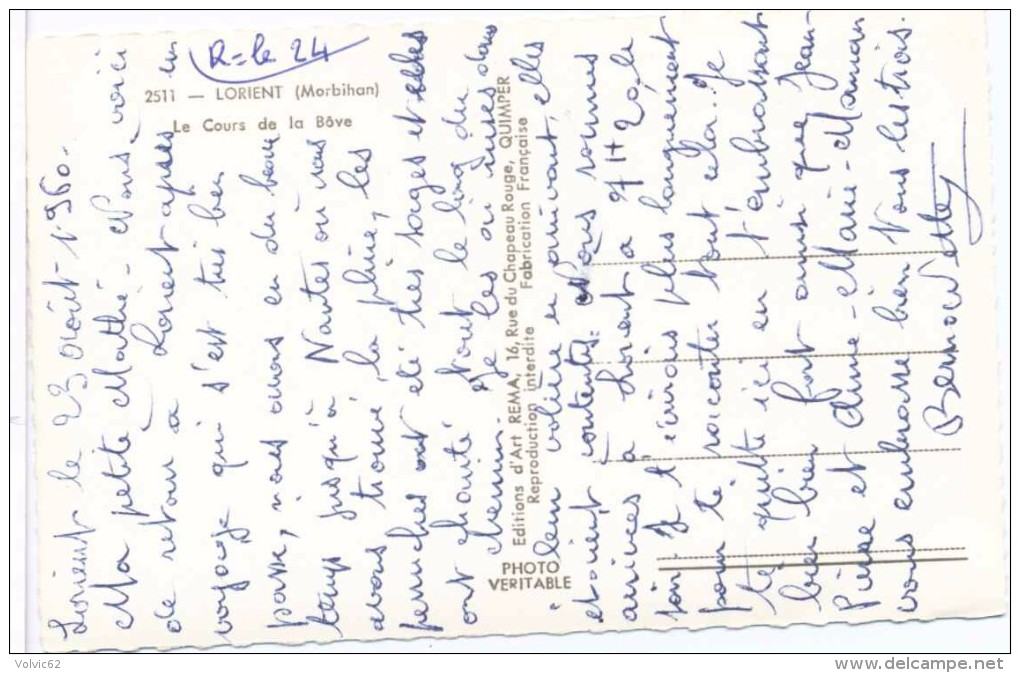 R = le 24
2511 — LORIENT (Morbihan)
Le Cours de la Bôve
Lorient le 23 août 1960.
Ma petite Mathé - Nous voici
de retour à Lorient après un
voyage qui s'est très bien
passé, nous avons eu du beau
temps jusqu'à Nantes où nous
avons trouvé la pluie, les
perruches ont été très sages et elles
ont chanté tout le long du
chemin. Je les ai mises dans
leur volière en arrivant, elles
étaient contentes. Nous sommes
arrivés à Lorient à 17 H 20 le
soir. Je t'écrirais plus longuement
pour te raconter tout cela. Je
te quitte ici en t'embrassant
bien bien fort ainsi que Jean-
Pierre et Anne-Marie - Maman
vous embrasse bien tous les trois.
Bernadette
Editions d'Art REMA, 16, Rue du Chapeau Rouge, QUIMPER
Reproduction interdite Fabrication Française
PHOTO
VERITABLE
Volvic62
www.delcampe.net